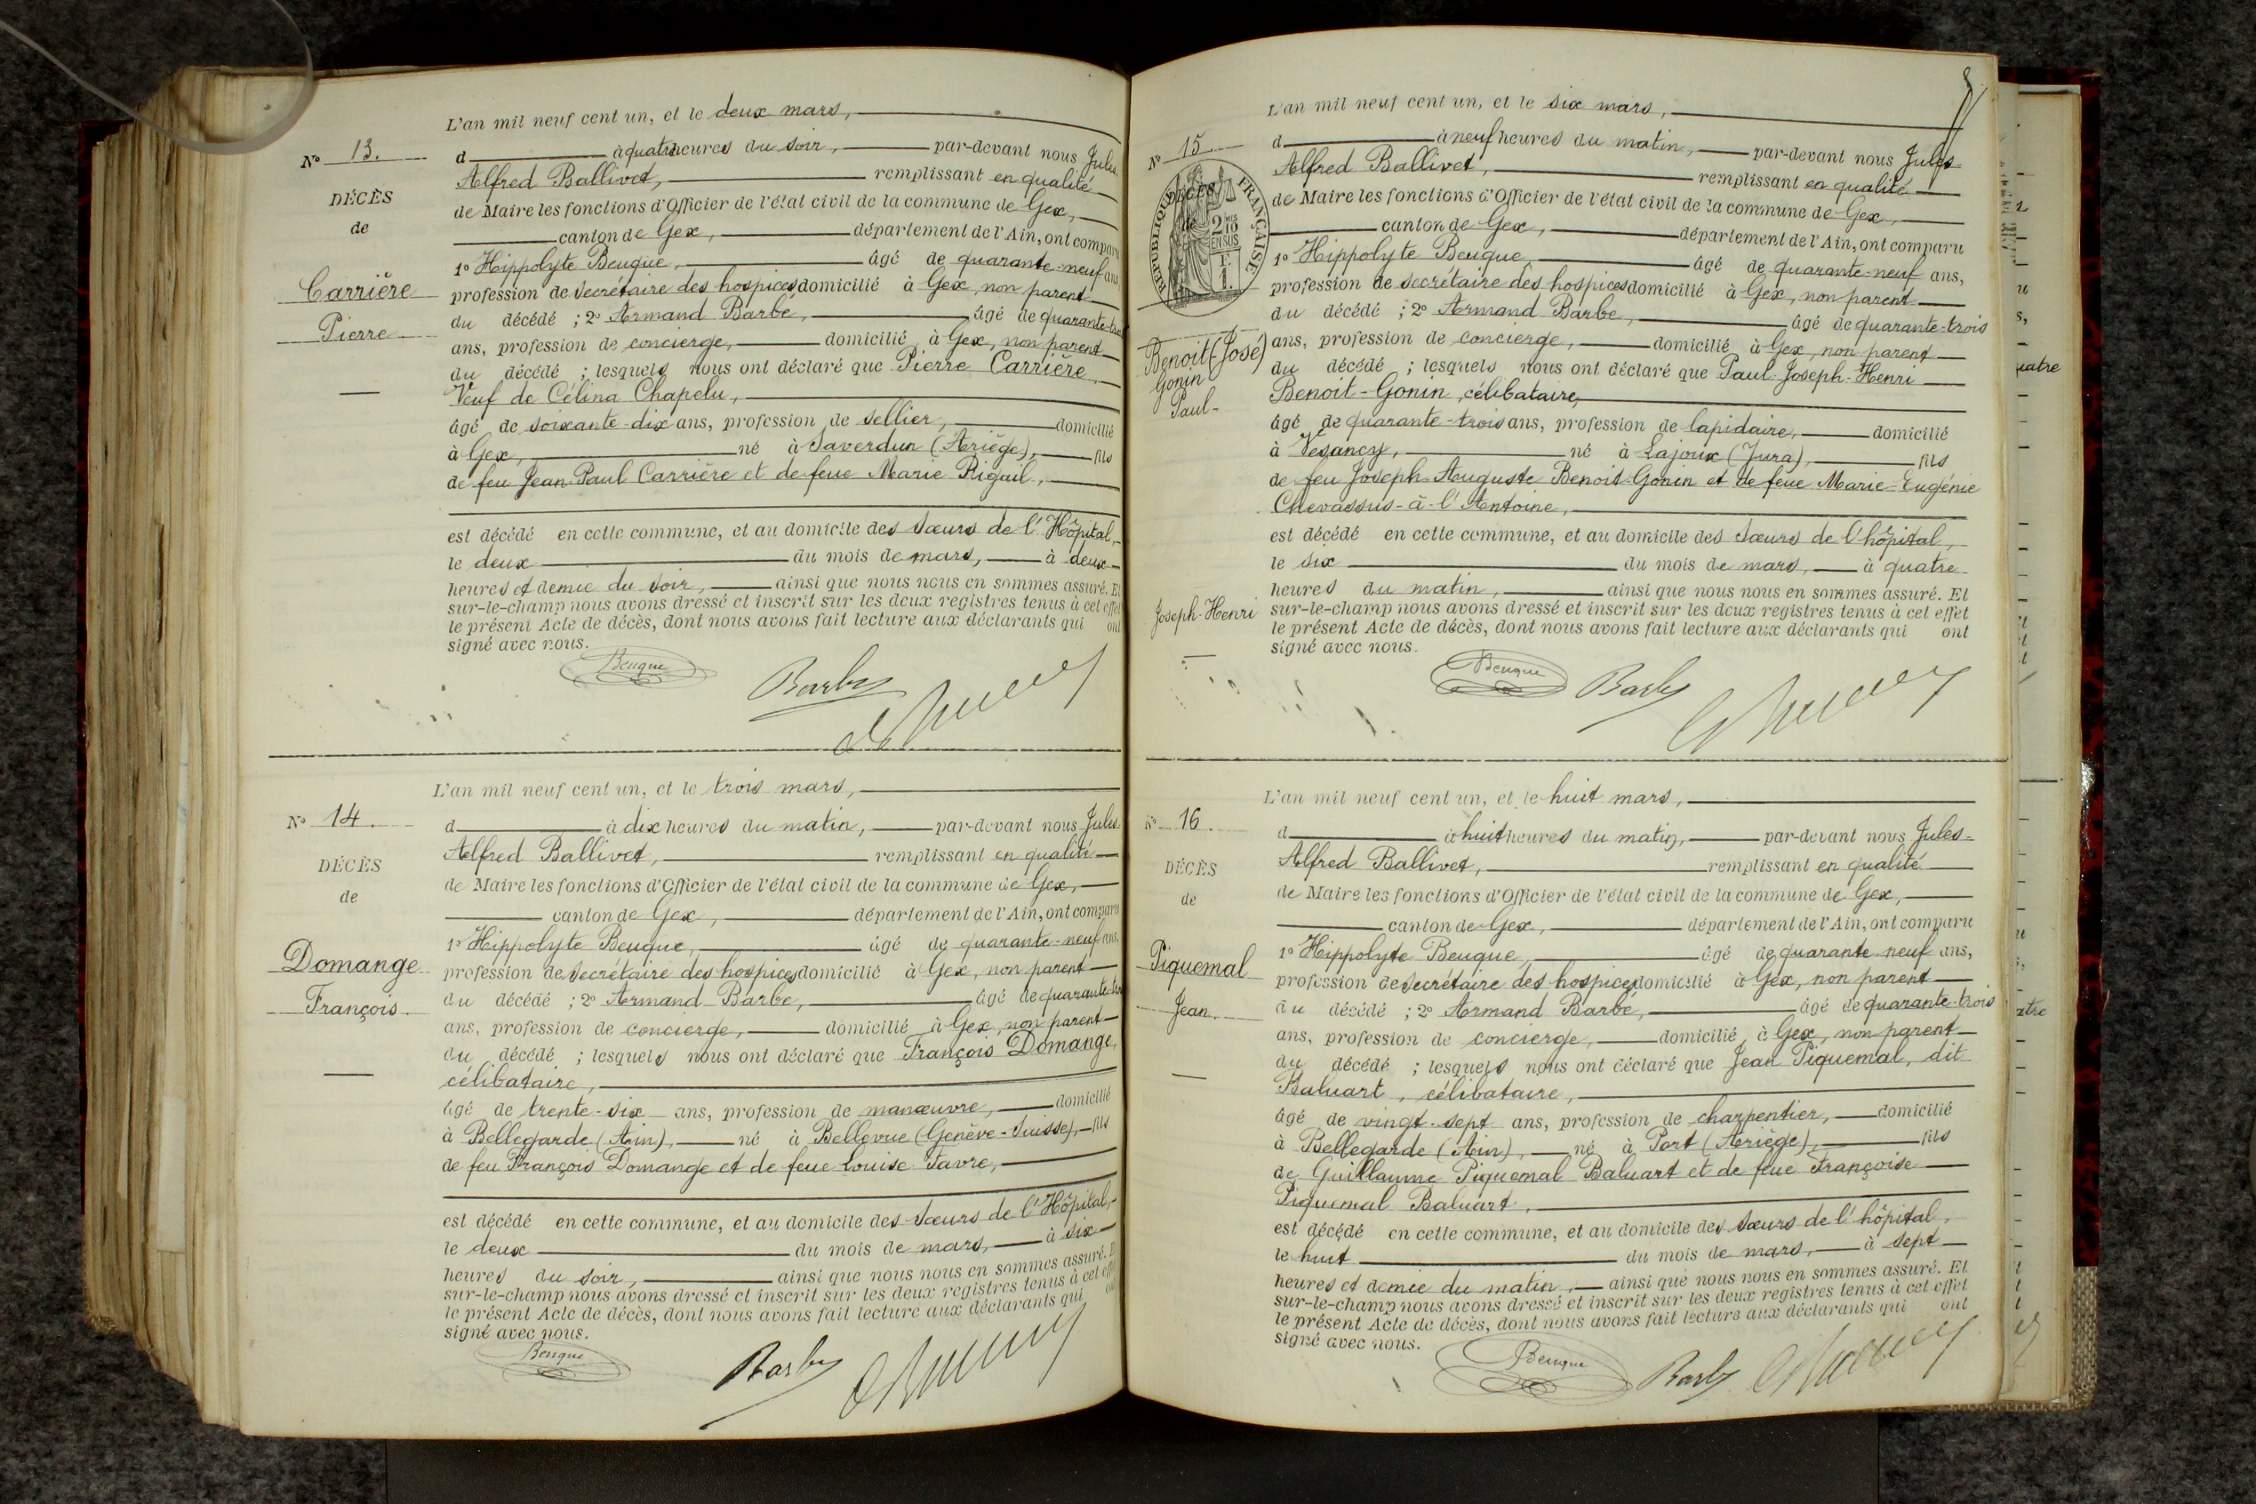 L'an mil neuf cent un, et le deux mars,
N° 13.
d à quatre heures du soir, par-devant nous Jules
Alfred Ballivet, remplissant en qualité
DÉCÈS
de Maire les fonctions d'Officier de l'état civil de la commune de Gex,
de
canton de Gex, département de l'Ain, ont comparu
1° Hippolyte Beuque, âgé de quarante-neuf ans
Carrière
profession de secrétaire des hospices domicilié à Gex, non parent
Pierre
du décédé ; 2° Armand Barbé, âgé de quarante-trois
ans, profession de concierge, domicilié à Gex, non parent
du décédé ; lesquels nous ont déclaré que Pierre Carrière,
Veuf de Célina Chapelu,
âgé de soixante-dix ans, profession de sellier, domicilié
à Gex, né à Saverdun (Ariège), fils
de feu Jean Paul Carrière et de feue Marie Rigail,
est décédé en cette commune, et au domicile des Sœurs de l'Hôpital,
le deux du mois de mars, à deux
heures et demie du soir, ainsi que nous nous en sommes assuré. Et
sur-le-champ nous avons dressé et inscrit sur les deux registres tenus à cet effet
le présent Acte de décès, dont nous avons fait lecture aux déclarants qui ont
signé avec nous.
Beuque Barbé
L'an mil neuf cent un, et le trois mars,
N° 14.
d à dix heures du matin, par-devant nous Jules
Alfred Ballivet, remplissant en qualité
DÉCÈS
de Maire les fonctions d'Officier de l'état civil de la commune de Gex,
de
canton de Gex, département de l'Ain, ont comparu
1° Hippolyte Beuque, âgé de quarante-neuf ans,
Domange
profession de secrétaire des hospices domicilié à Gex, non parent
François
du décédé ; 2° Armand Barbé, âgé de quarante-trois
ans, profession de concierge, domicilié à Gex, non parent
du décédé ; lesquels nous ont déclaré que François Domange,
célibataire,
âgé de trente-six ans, profession de manœuvre, domicilié
à Bellegarde (Ain), né à Bellevue (Genève-Suisse), fils
de feu François Domange et de feue Louise Favre,
est décédé en cette commune, et au domicile des Sœurs de l'Hôpital,
le deux du mois de mars, à six
heures du soir, ainsi que nous nous en sommes assuré. Et
sur-le-champ nous avons dressé et inscrit sur les deux registres tenus à cet effet
le présent Acte de décès, dont nous avons fait lecture aux déclarants qui ont
signé avec nous.
Beuque Barbé
L'an mil neuf cent un, et le six mars,
N° 15
d à neuf heures du matin, par-devant nous Jules
Alfred Ballivet, remplissant en qualité
DÉCÈS
de
RÉPUBLIQUE FRANÇAISE
2/10 EN SUS
F.
1.
de Maire les fonctions d'Officier de l'état civil de la commune de Gex,
canton de Gex, département de l'Ain, ont comparu
1° Hippolyte Beuque, âgé de quarante-neuf ans,
profession de secrétaire des hospices domicilié à Gex, non parent
du décédé ; 2° Armand Barbé, âgé de quarante-trois
Benoit (José)
Gonin
Paul-
Joseph-Henri
ans, profession de concierge, domicilié à Gex, non parent
du décédé ; lesquels nous ont déclaré que Paul-Joseph-Henri
Benoit-Gonin, célibataire,
âgé de quarante-trois ans, profession de lapidaire, domicilié
à Vesancy, né à Lajoux (Jura), fils
de feu Joseph Auguste Benoit-Gonin et de feue Marie-Eugénie
Chevassus-à-l'Antoine,
est décédé en cette commune, et au domicile des Sœurs de l'hôpital,
le six du mois de mars, à quatre
heures du matin, ainsi que nous nous en sommes assuré. Et
sur-le-champ nous avons dressé et inscrit sur les deux registres tenus à cet effet
le présent Acte de décès, dont nous avons fait lecture aux déclarants qui ont
signé avec nous.
Beuque Barbé
L'an mil neuf cent un, et le huit mars,
N° 16.
d à huit heures du matin, par-devant nous Jules-
Alfred Ballivet, remplissant en qualité
DÉCÈS
de Maire les fonctions d'Officier de l'état civil de la commune de Gex,
de
canton de Gex, département de l'Ain, ont comparu
1° Hippolyte Beuque, âgé de quarante neuf ans,
Piquemal
profession de secrétaire des hospices domicilié à Gex, non parent
Jean
du décédé ; 2° Armand Barbé, âgé de quarante-trois
ans, profession de concierge, domicilié à Gex, non parent
du décédé ; lesquels nous ont déclaré que Jean Piquemal, dit
Baluart, célibataire,
âgé de vingt-sept ans, profession de charpentier, domicilié
à Bellegarde (Ain), né à Port (Ariège), fils
de Guillaume Piquemal Baluart et de feue Françoise
Piquemal Baluart,
est décédé en cette commune, et au domicile des Sœurs de l'hôpital,
le huit du mois de mars, à sept
heures et demie du matin, ainsi que nous nous en sommes assuré. Et
sur-le-champ nous avons dressé et inscrit sur les deux registres tenus à cet effet
le présent Acte de décès, dont nous avons fait lecture aux déclarants qui ont
signé avec nous.
Beuque Barbé